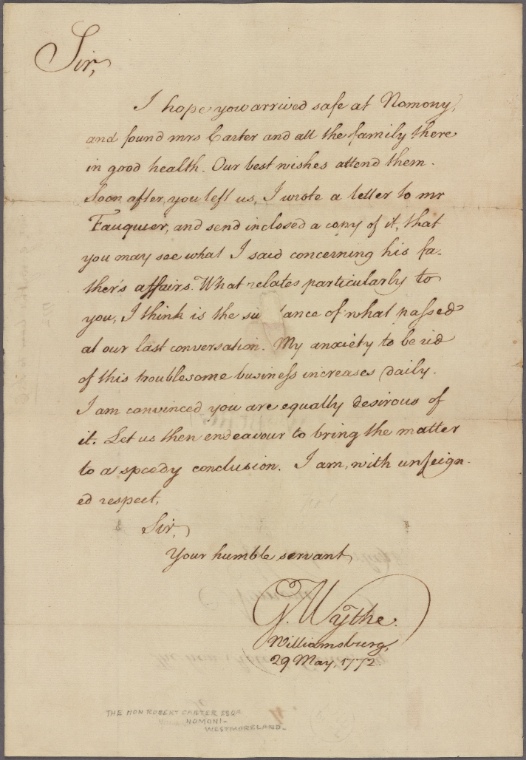 Sir,
I hope you arrived safe at Nomony,
and found mrs Carter and all the family there
in good health. Our best wishes attend them.
Soon after you left us, I wrote a letter to mr
Fauquier, and send inclosed a copy of it, that
you may see what I said concerning his fa-
ther's affairs. What relates particularly to
you, I think is the su tance of what passed
at our last conversation. My anxiety to be rid
of this troublesome business increases daily.
I am convinced you are equally desirous of
it. Let us then endeavour to bring the matter
to a speedy conclusion. I am, with unfeign-
ed respect,
Sir,
Your humble servant
G. Wythe.
Williamsburg,
29 May, 1772
THE HON ROBERT CARTER ESQR
NOMONI-
WESTMORELAND-